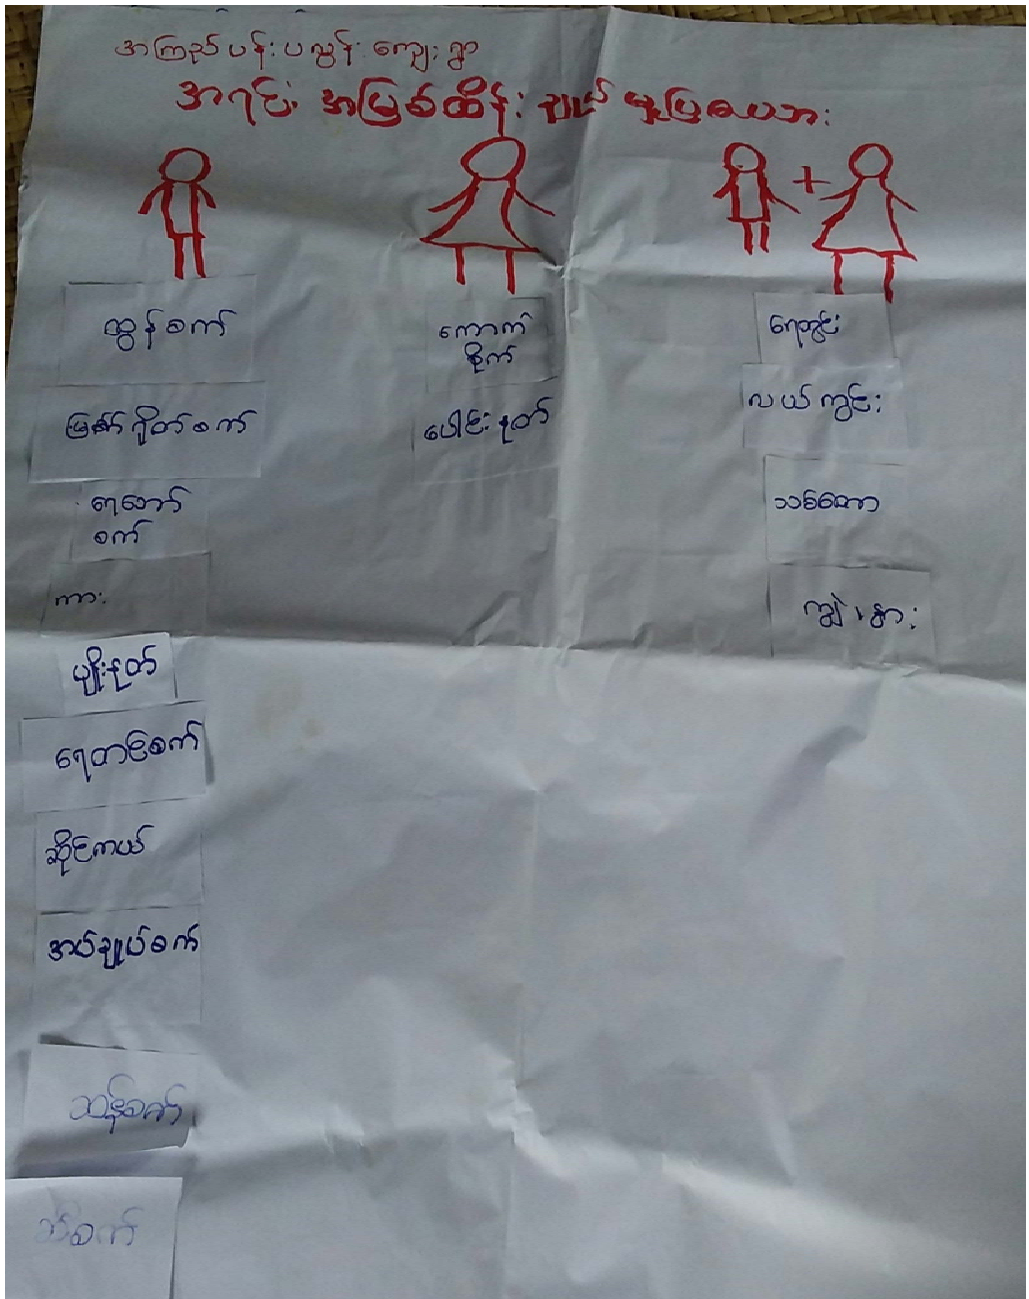 အကြည်ပန်းပလွန်းကျေးရွာ
အရင်း အမြစ်ထိန်းချုပ်မှုပြဇယား
ထွန်စက်
မြက်ရိတ်စက်
ရေမော်
စက်
ကား
မျိုးနုတ်
ရေတင်စက်
ဆိုင်ကယ်
အပ်ချုပ်စက်
ဆန်စက်
ဆီစက်
ကောက်
စိုက်
ပေါင်းနုတ်
+
ရေတွင်း
လယ်ကွင်း
သစ်တော
ကျွဲ၊နွား